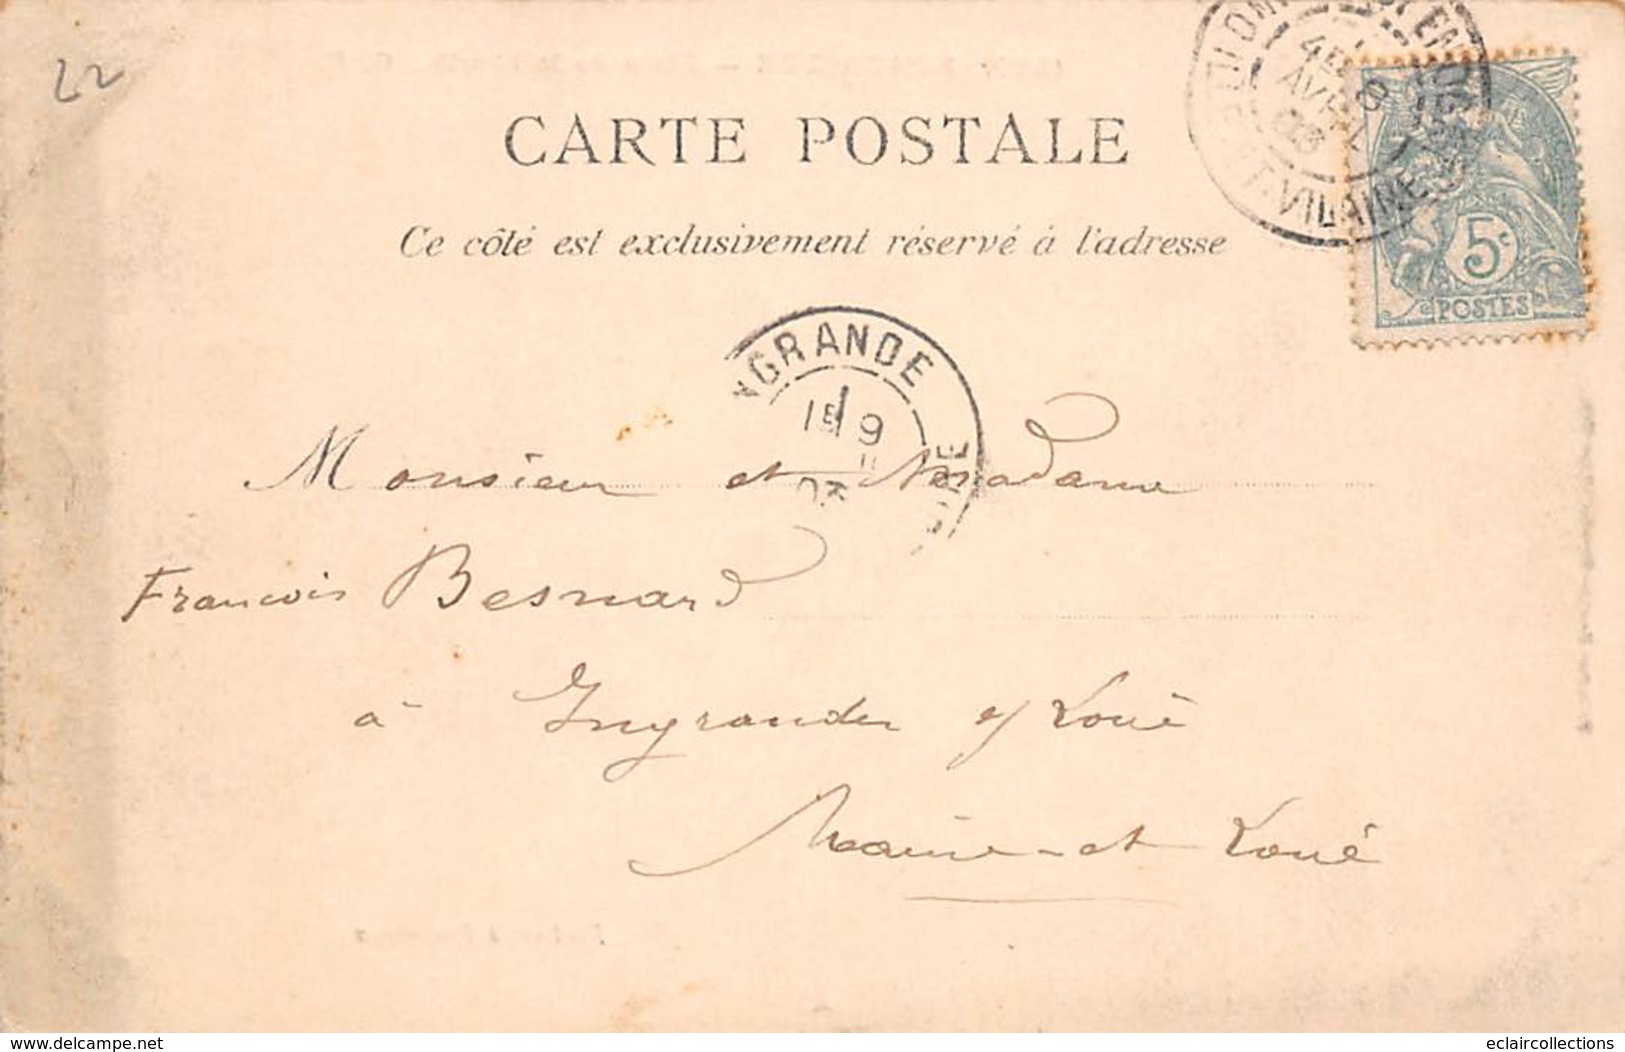 22
CARTE POSTALE
Ce côté est exclusivement réservé à l'adresse
4E
AVRIL
VILAINE
5c
POSTES
NGRANDE
1E 9
Monsieur et Madame
Francois Besnard
à Ingrandes s/ Loire
Maine-et Loire
www.delcampe.net
eclaircollections